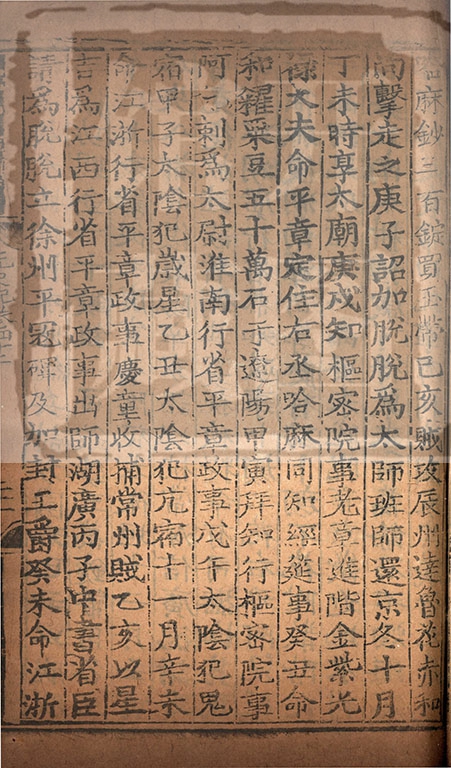 哈麻鈔三百錠買玉帶己亥賊攻辰州達魯花赤和
尚擊走之庚子詔加脫脫爲太師班師還京冬十月
丁未時享太廟庚戌知樞密院事老章進階金紫光
祿大夫命平章定住右丞哈麻同知經筵事癸丑命
和糴粟豆五十萬石于遼陽甲寅拜知行樞密院事
阿乞剌爲太尉淮南行省平章政事戊午太陰犯鬼
宿甲子太陰犯歲星乙丑太陰犯亢宿十一月辛未
命江浙行省平章政事慶童收捕常州賊乙亥以星
吉爲江西行省平章政事出師湖廣丙子中書省臣
請爲脫脫立徐州平寇碑及加封王爵癸未命江浙